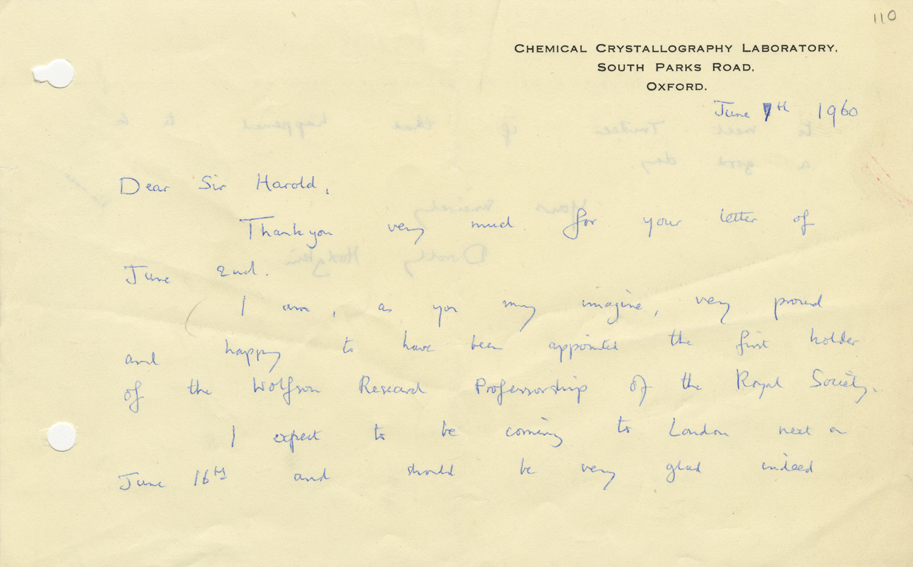 110
CHEMICAL CRYSTALLOGRAPHY LABORATORY,
SOUTH PARKS ROAD,
OXFORD.
June 7th 1960
Dear Sir Harold,
Thank you very much for your letter of
June 2nd.
I am, as you may imagine, very proud
and happy to have been appointed the first holder
of the Wolfson Research Professorship of the Royal Society.
I expect to be coming to London next on
June 16th and should be very glad indeed
to meet Trustees if that happened to be
a good day.
Yours sincerely
Dorothy Hodgkin